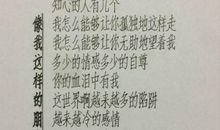 知心的人有几个
我怎么能够让你孤独地这样走
我怎么能够让你无助地望着我
多少的情感多少的自尊
你的血泪中有我
这世界啊越来越多的陷阱
越来越冷的感情
像我这样的朋